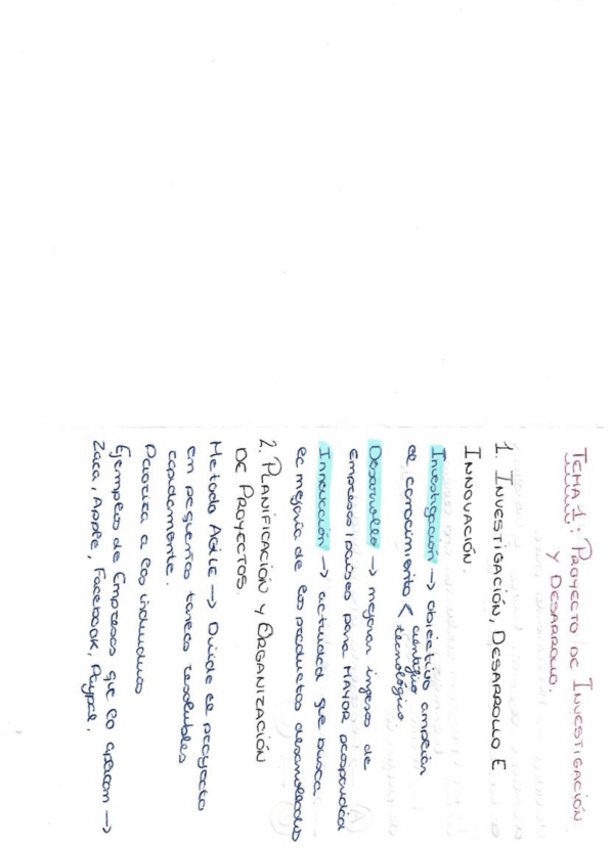 TEMA 1: PROYECTO DE INVESTIGACIÓN
Y DESARROLLO.
1. INVESTIGACIÓN, DESARROLLO E
INNOVACIÓN.
Investigación → objetivo ampliar
el conocimiento < científico
tecnológico
Desarrollo → mejorar ingreso de
empresas/países para MAYOR prosperidad
Innovación → actividad que busca
la mejoría de los productos desarrollados
2. PLANIFICACIÓN Y ORGANIZACIÓN
DE PROYECTOS.
Metodo AGILE → Divide el proyecto
en pequeñas tareas resolubles
rapidamente.
Prioriza a los individuos
Ejemplos de Empresas que lo aplican →
Zara, Apple, Facebook, Paypal.